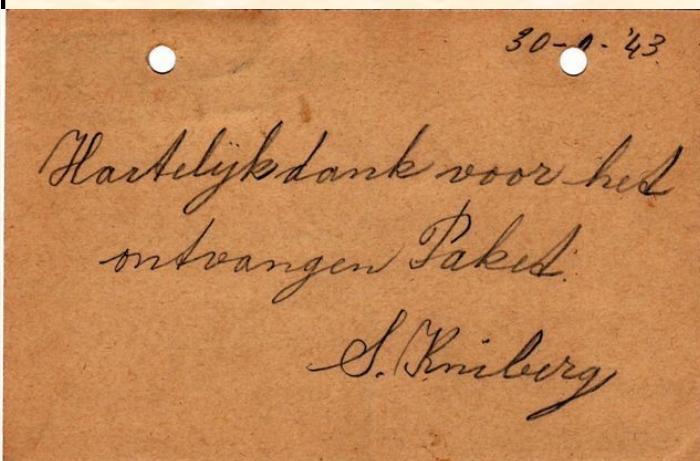 30- - '43
Hartelijk dank voor het
ontvangen Paket.
S. Kniberg